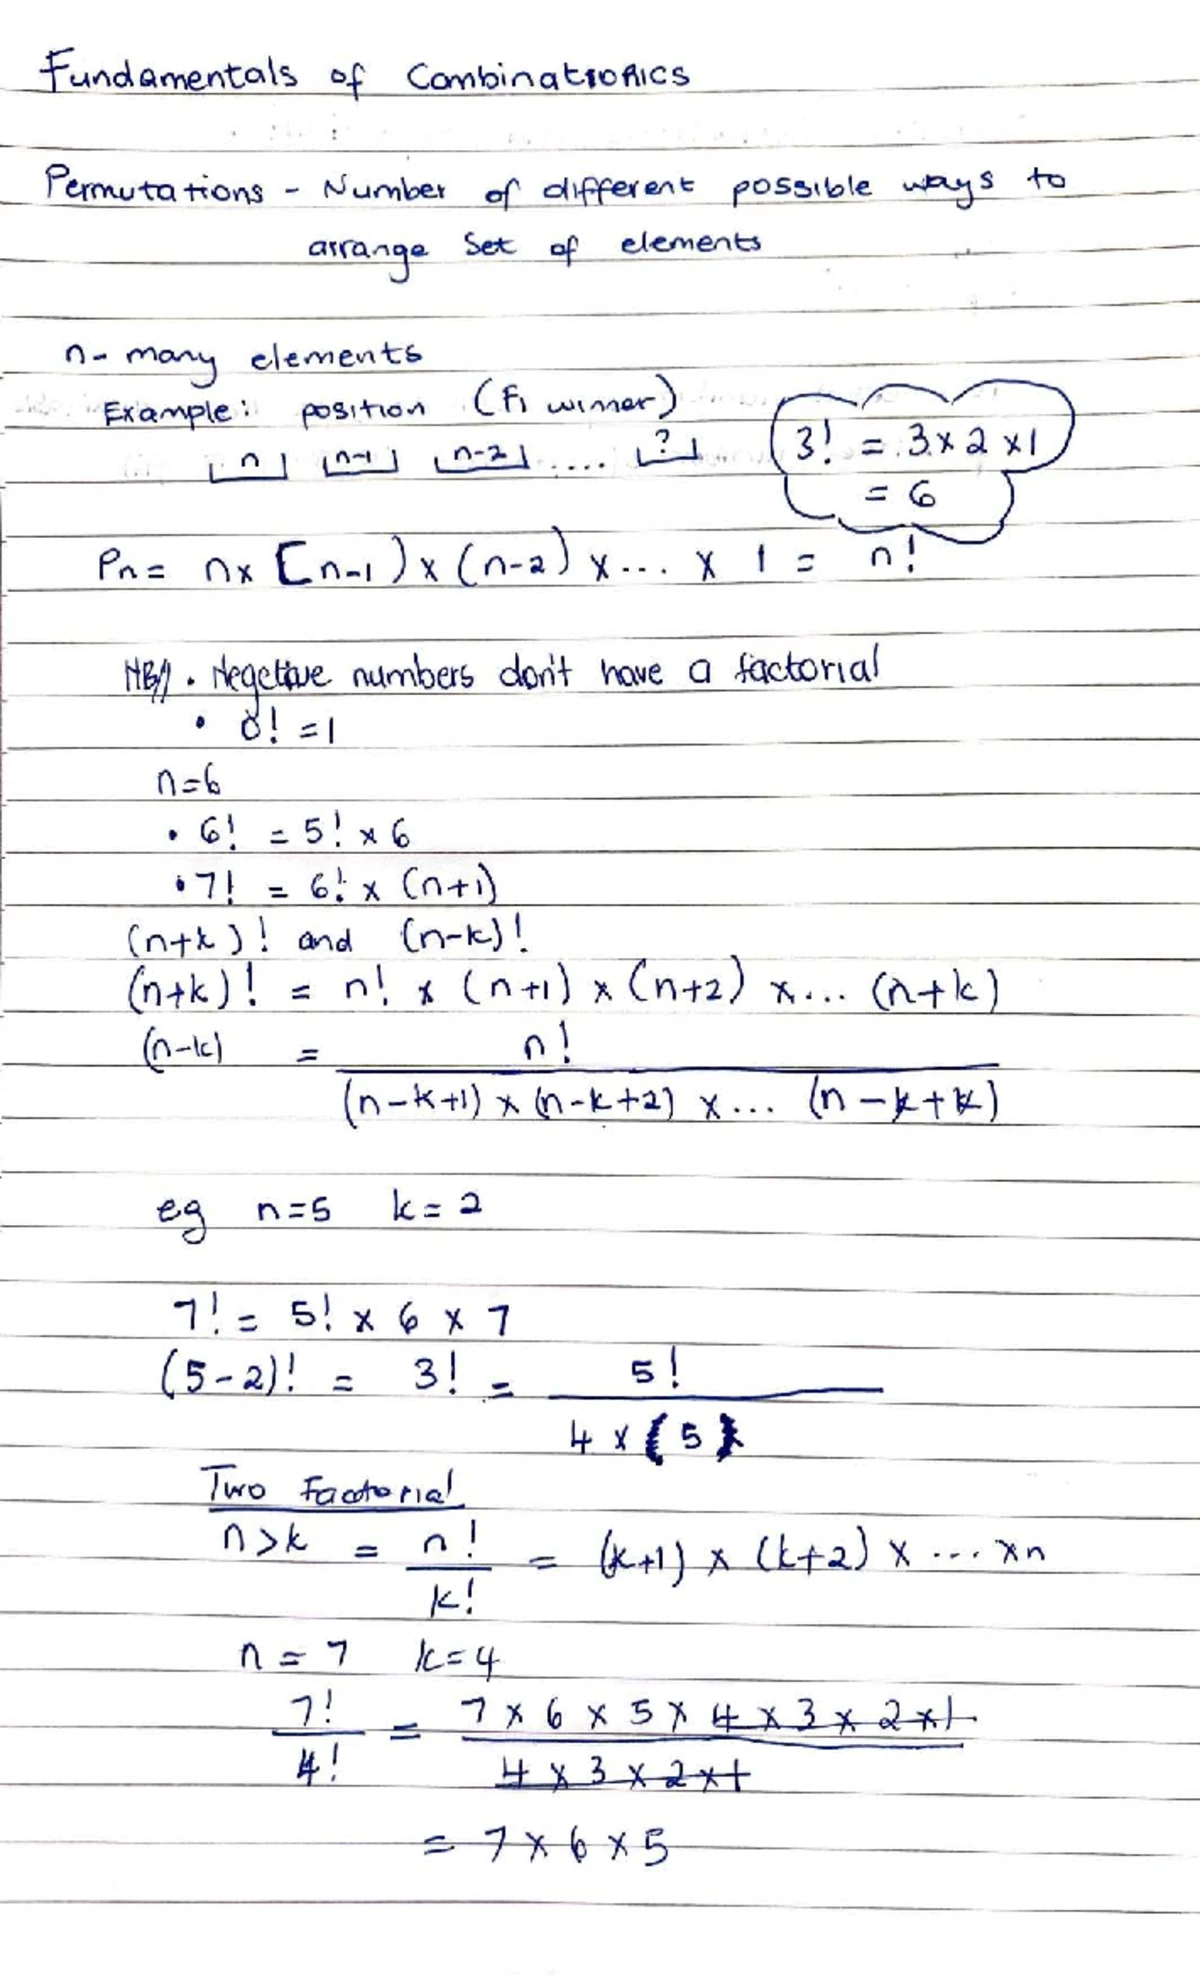 Fundamentals of Combinatronics
Permutations - Number of different possible ways to
arrange Set of elements
n- many elements
Example: position (F1 winner)
n n-1 n-2 .... ?
3! = 3 x 2 x 1
= 6
Pn = n x [n-1) x (n-2) x ... x 1 = n!
NB// • Negetive numbers don't have a factorial
• 0! = 1
n=6
• 6! = 5! x 6
• 7! = 6! x (n+1)
(n+k)! and (n-k)!
(n+k)! = n! x (n+1) x (n+2) x ... (n+k)
(n-k) = n!
(n-k+1) x (n-k+2) x ... (n-k+k)
eg n=5 k=2
7! = 5! x 6 x 7
(5-2)! = 3! = 5!
4 x (5)
Two Factorial
n>k = n! = (k+1) x (k+2) x ... xn
k!
n = 7 k=4
7! = 7 x 6 x 5 x 4 x 3 x 2 x 1
4! 4 x 3 x 2 x 1
= 7 x 6 x 5